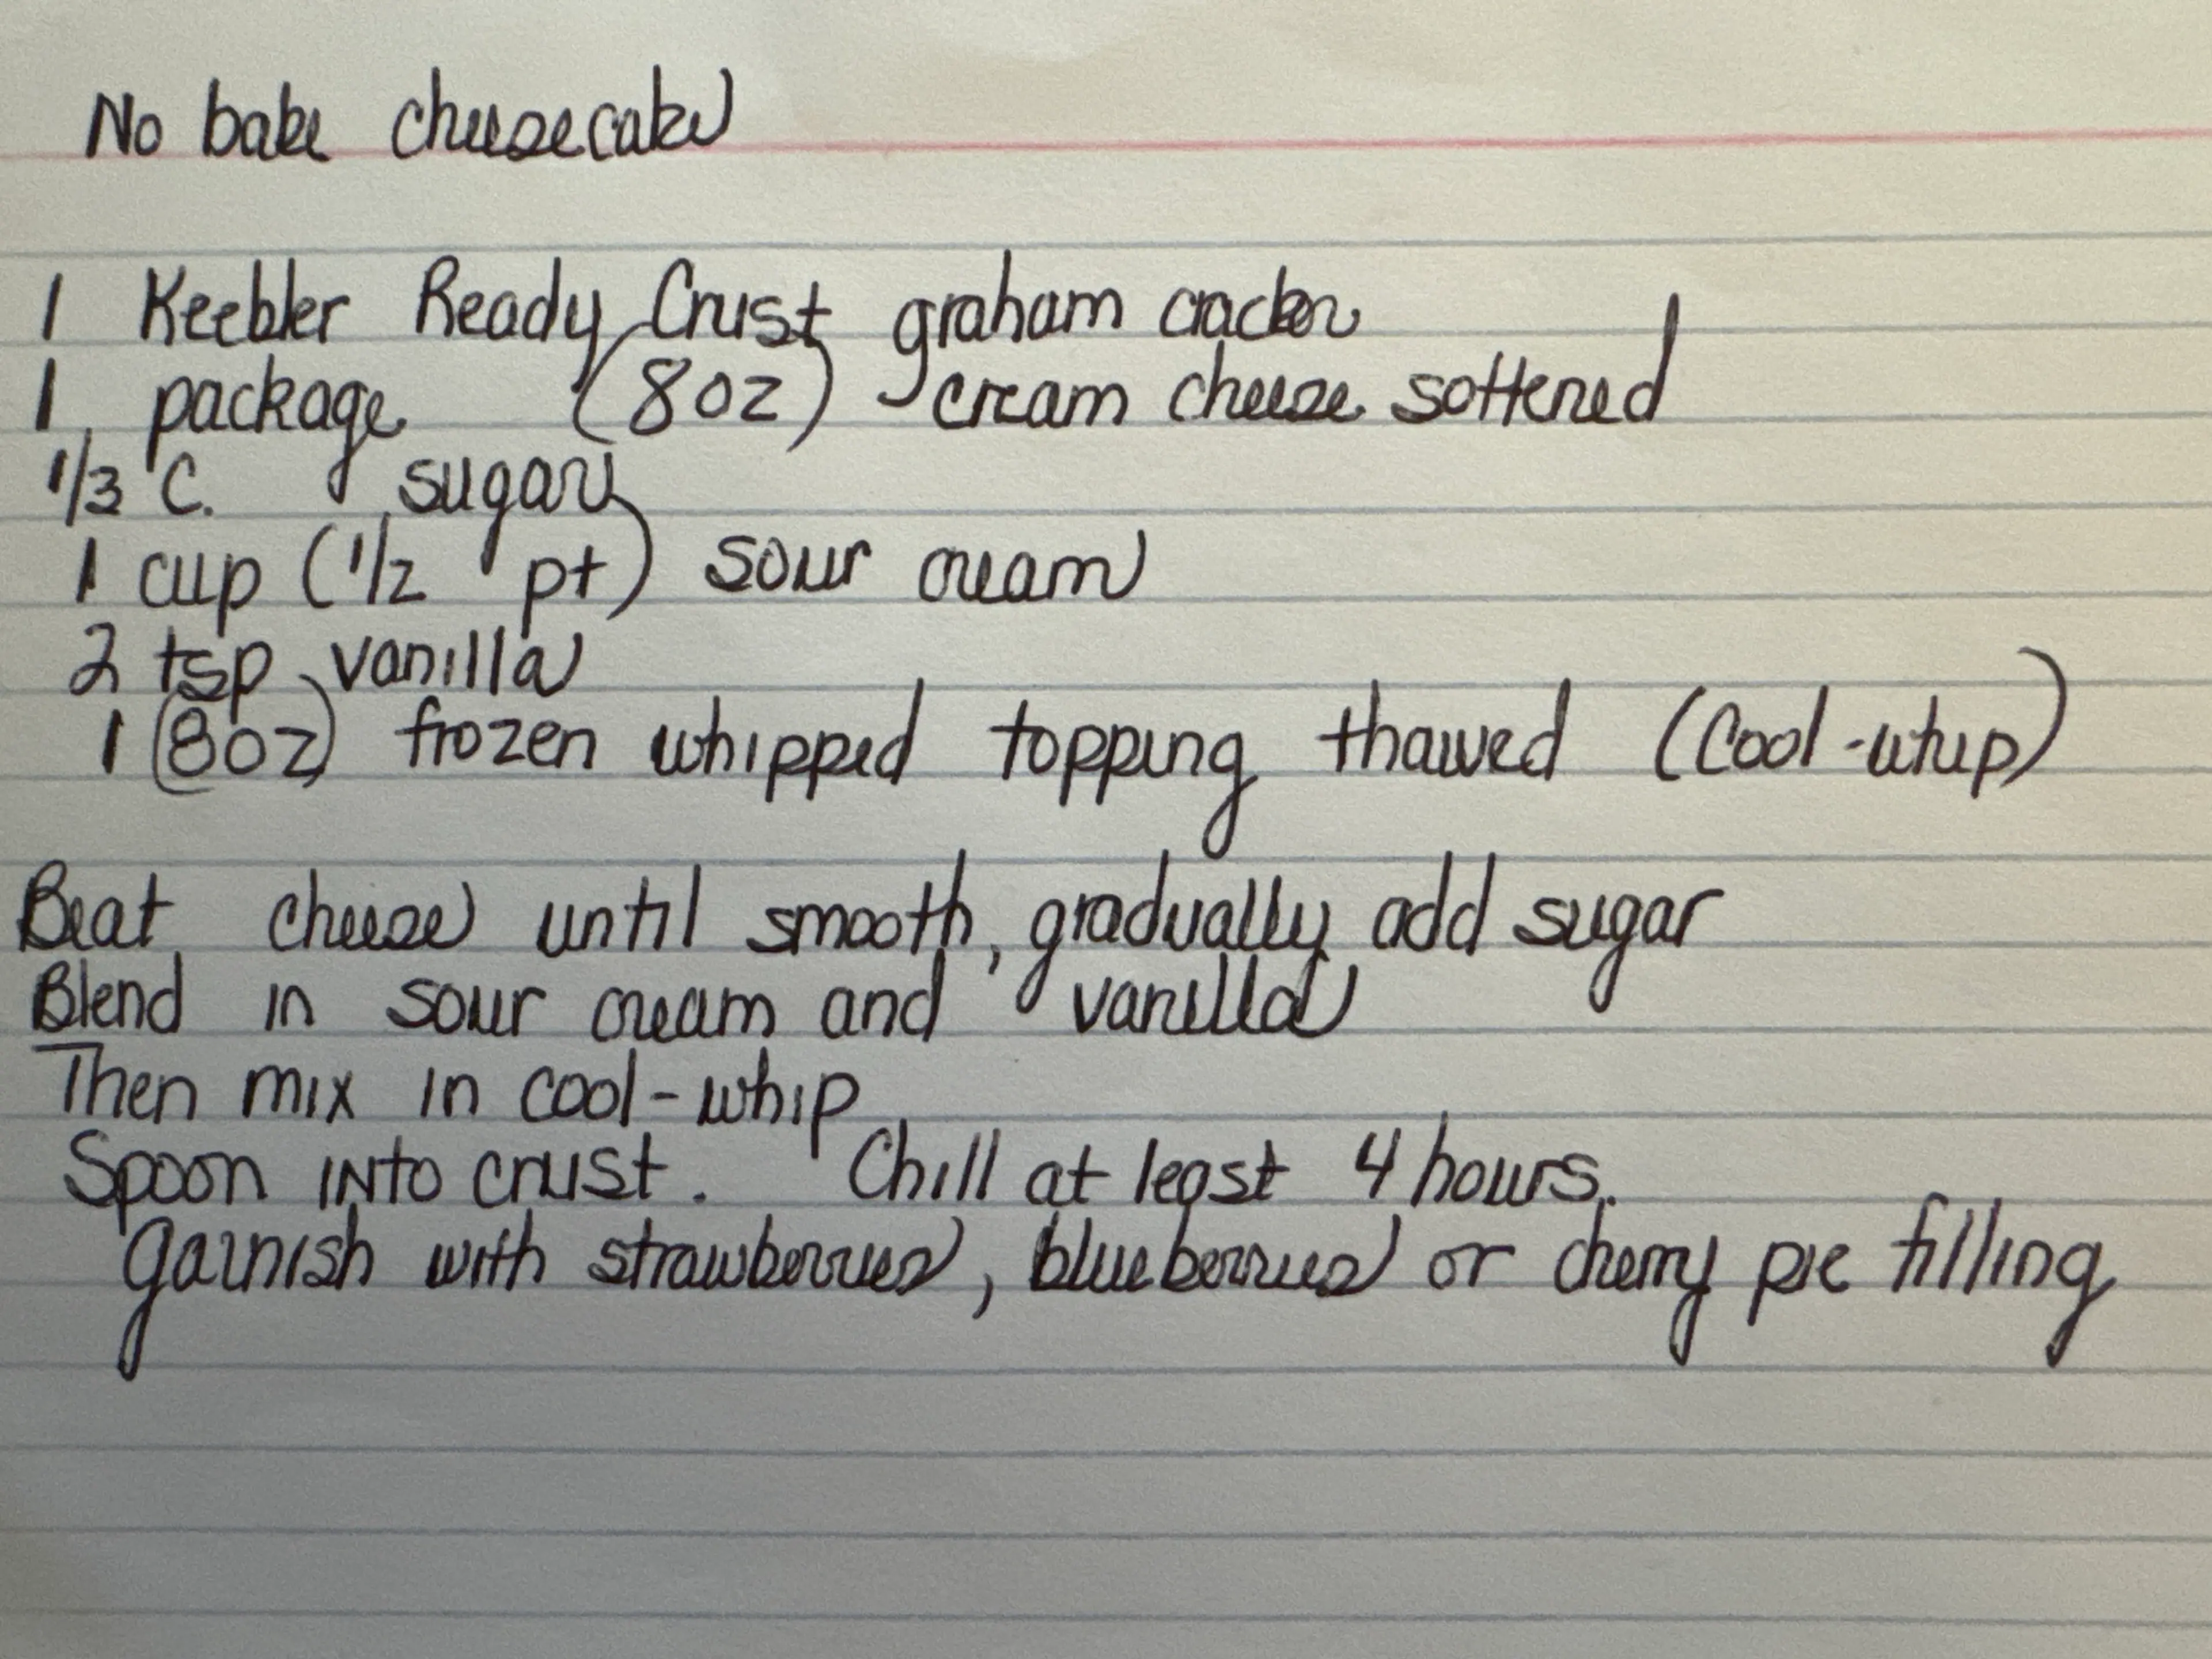 No bake cheesecake
1 Keebler Ready Crust graham cracker
1 package (8oz) cream cheese softened
1/3 C. sugar
1 cup (1/2 pt) sour cream
2 tsp vanilla
1 (8oz) frozen whipped topping thawed (Cool-whip)
Beat cheese until smooth, gradually add sugar
Blend in sour cream and vanilla
Then mix in cool-whip
Spoon into crust. Chill at least 4 hours.
Garnish with strawberries, blueberries or cherry pie filling